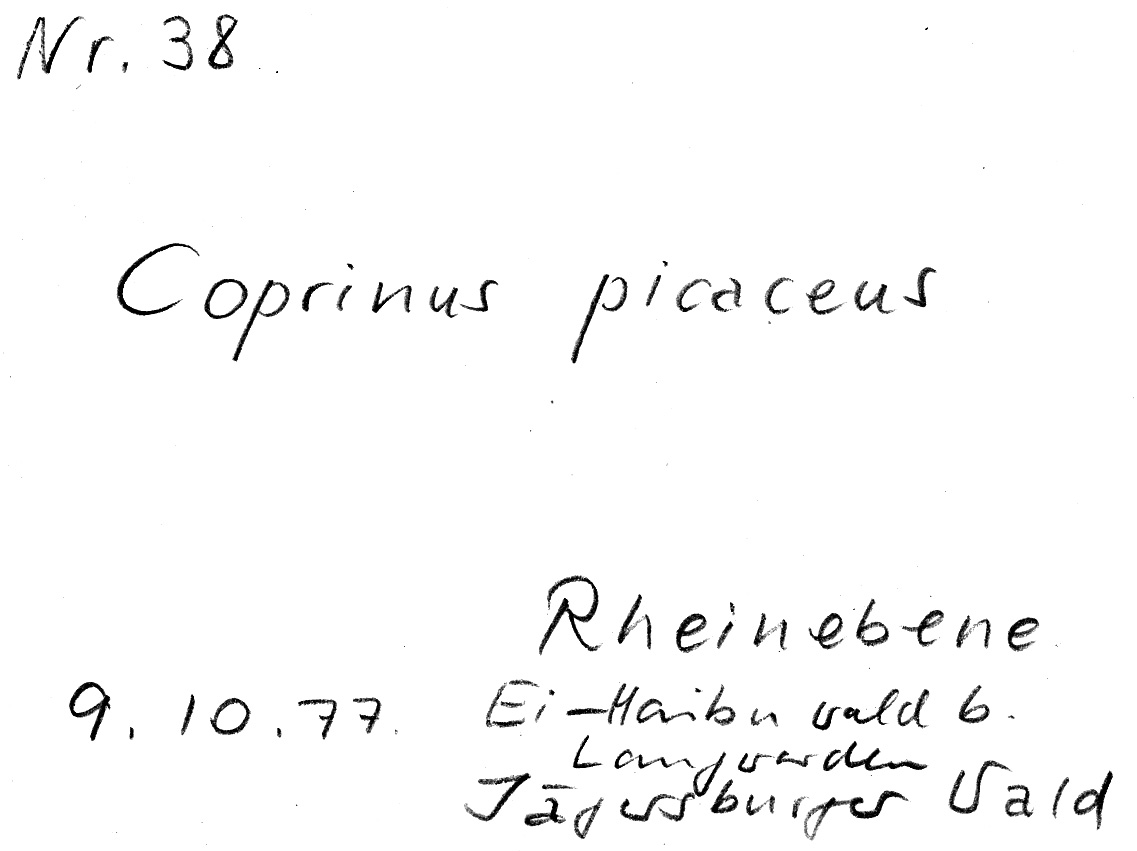 Nr. 38
Coprinus picaceus
Rheinebene
9.10.77. Ei-Hainbu wald b.
Langwaden
Jägersburger Wald